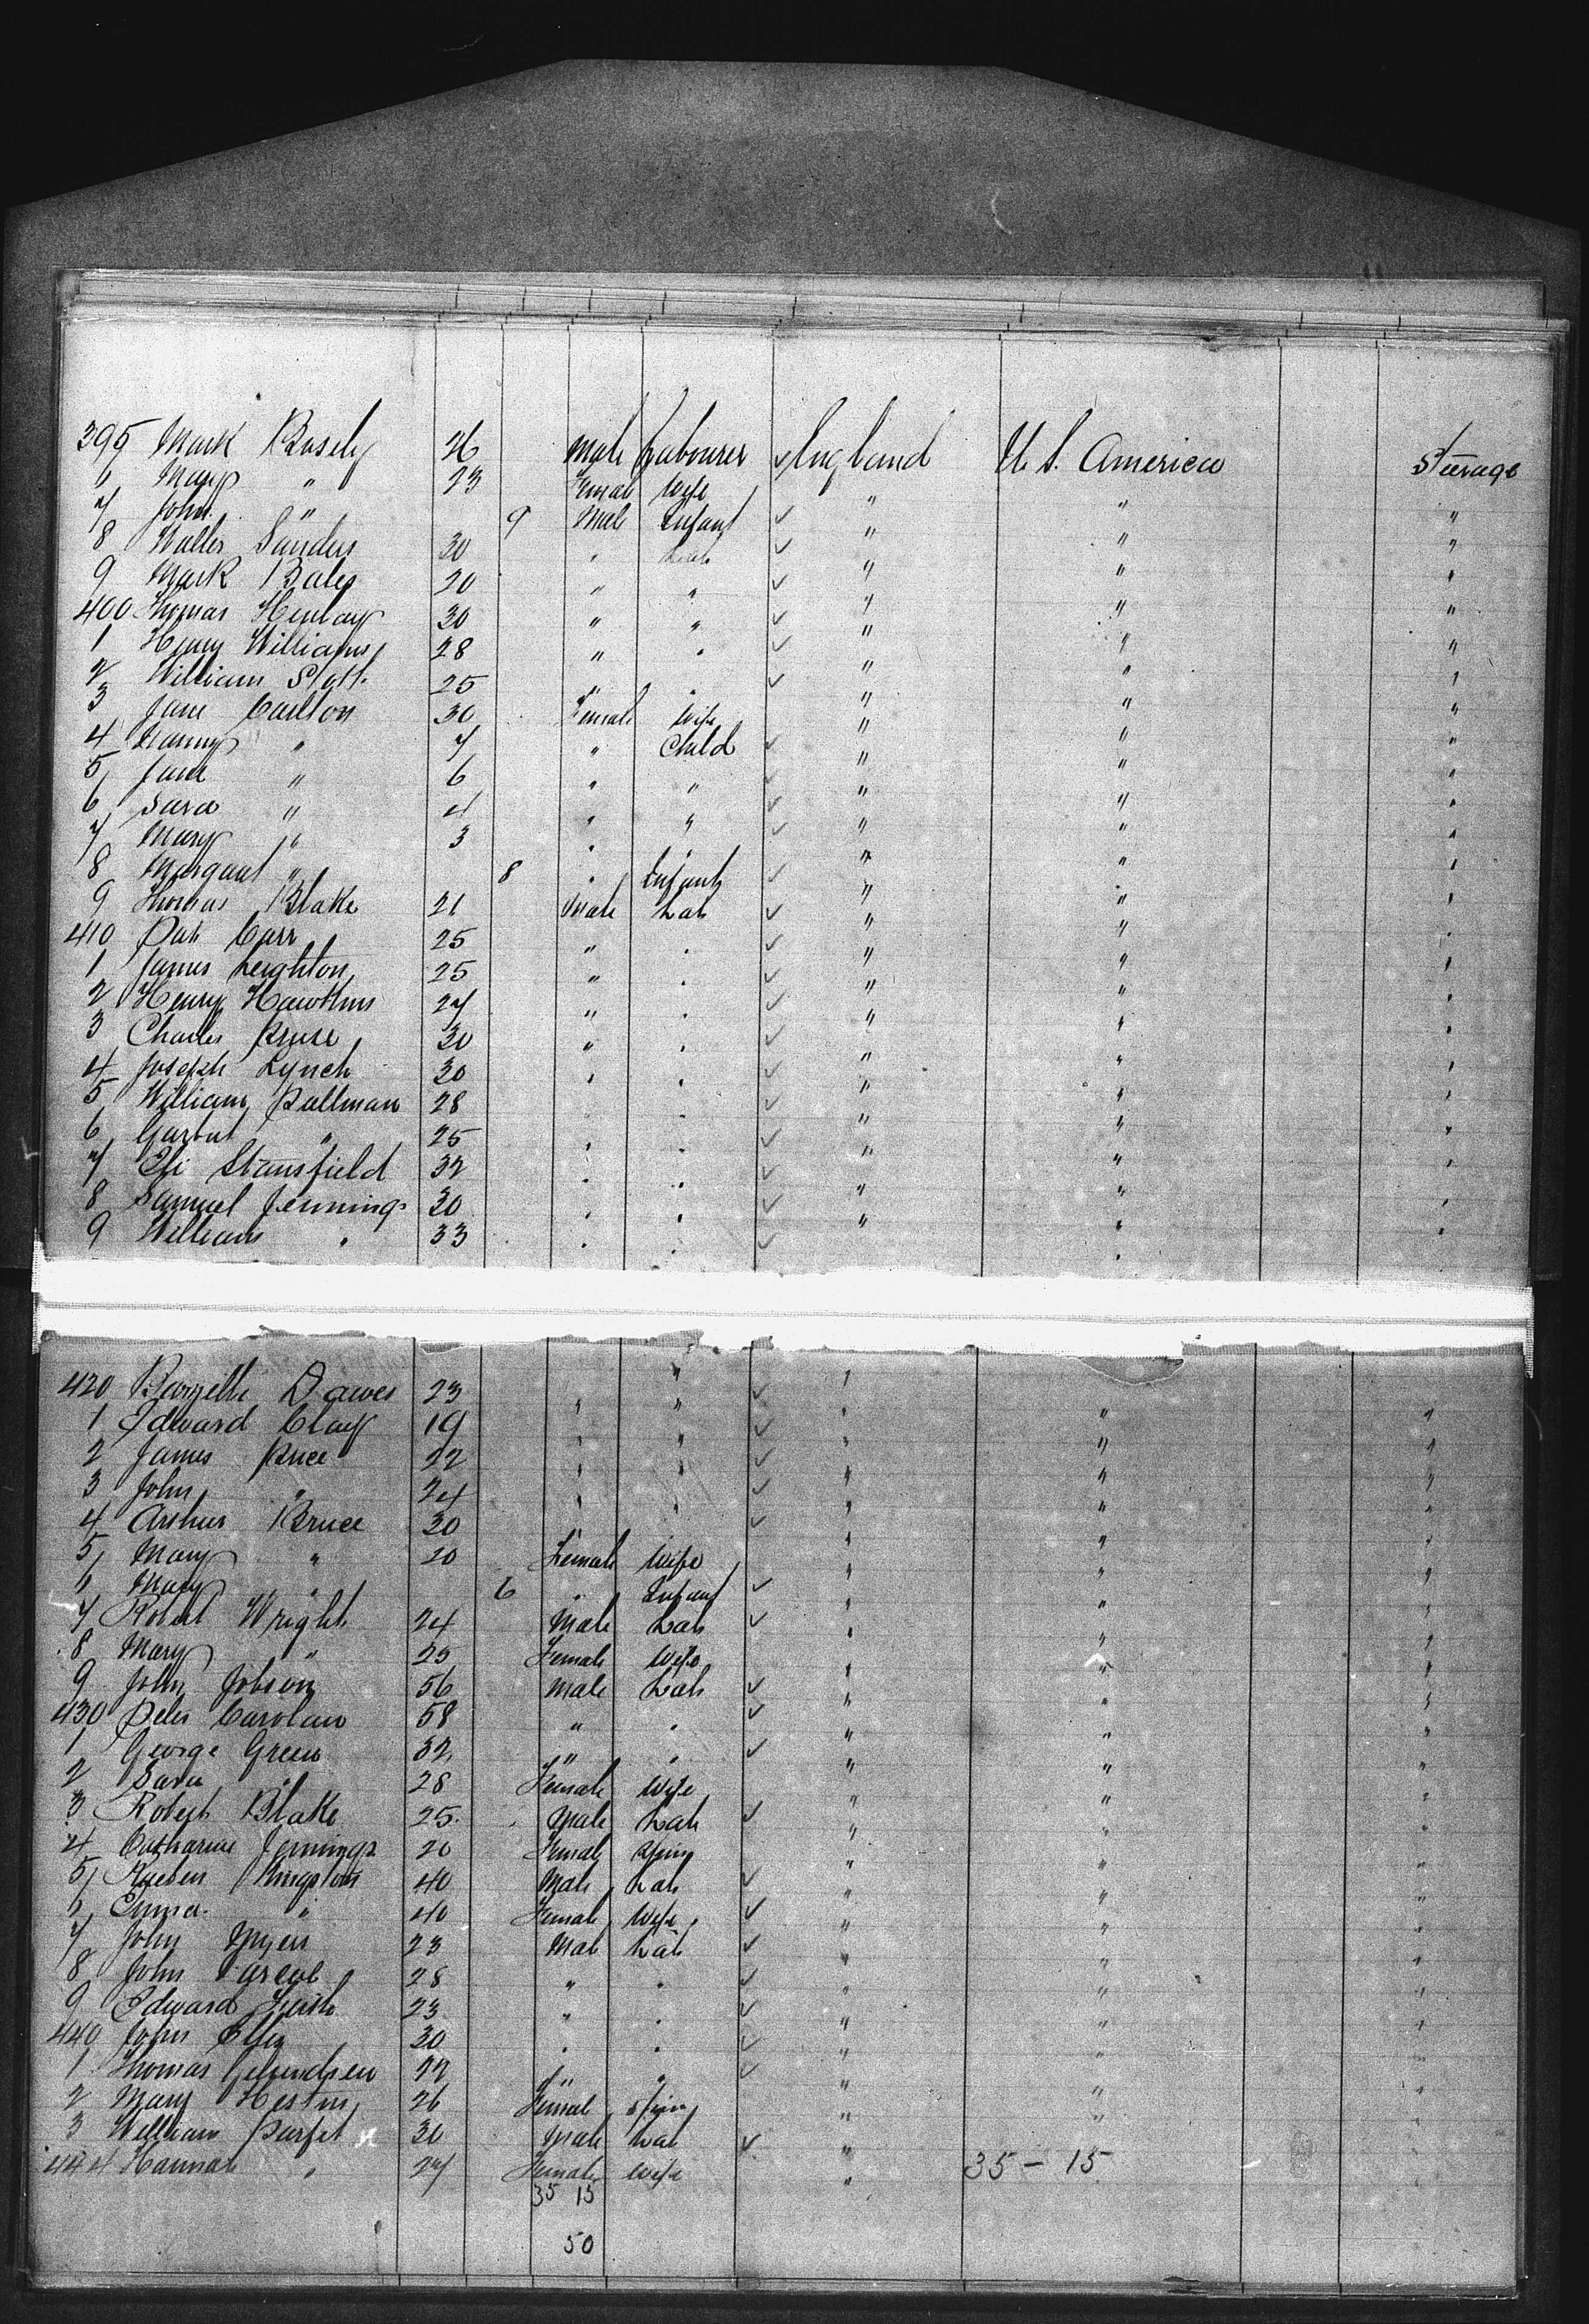 395 Mark Bosely 26 Male Labourer ✓ England U. S. America Steerage
6 Mary " 23 Female Wife " " "
7 John " 9 Male Infant ✓ " " "
8 Walter Sanders 30 " Lab ✓ " " "
9 Mark Bales 20 " " ✓ " " "
400 Thomas Henlay 30 " " ✓ " " "
1 Henry Williams 28 " " ✓ " " "
2 William Stott 25 " " ✓ " " "
3 Jane Carlton 30 Female Wife " " "
4 Nanny " 7 " Child ✓ " " "
5 Jane " 6 " " ✓ " " "
6 Sara " 4 " " ✓ " " "
7 Mary " 3 " " ✓ " " "
8 Margaret " 8 " Infant ✓ " " "
9 Thomas Blake 21 Male Lab ✓ " " "
410 Pat Carr 25 " " ✓ " " "
1 James Leighton 25 " " ✓ " " "
2 Henry Hawkins 27 " " ✓ " " "
3 Charles Bruce 30 " " ✓ " " "
4 Joseph Lynch 30 " " ✓ " " "
5 William Pullman 28 " " ✓ " " "
6 " 25 " " ✓ " " "
7 Stansfield 32 " " ✓ " " "
8 Samuel Jennings 30 " " ✓ " " "
9 William " 33 " " ✓ " " "
420 Dawes 23 " " ✓ " " "
1 Edward Clay 19 " " ✓ " " "
2 James Price 22 " " ✓ " " "
3 John " 24 " " ✓ " " "
4 Arthur Bruce 30 " " ✓ " " "
5 Mary " 20 Female Wife " " "
6 Mary " 6 " Infant ✓ " " "
7 Robert Wright 24 Male Lab ✓ " " "
8 Mary " 25 Female Wife " " "
9 John Jobson 56 Male Lab ✓ " " "
430 Peter Carolan 58 " " ✓ " " "
1 George Green 32 " " ✓ " " "
2 Sara " 28 Female Wife " " "
3 Robert Blake 25 Male Lab ✓ " " "
4 Catharine Jennings 20 Female Spin " " "
5 Kingston 40 Male Lab ✓ " " "
6 Emma " 40 Female Wife ✓ " " "
7 John Myers 23 Male Lab ✓ " " "
8 John 28 " " ✓ " " "
9 Edward 23 " " ✓ " " "
440 John 30 " " ✓ " " "
1 Thomas 22 " " ✓ " " "
2 Mary 26 Female Spin " " "
3 William Parfet 30 Male Lab ✓ "
444 Hannah " 27 Female Wife " 35 - 15
35 15
50